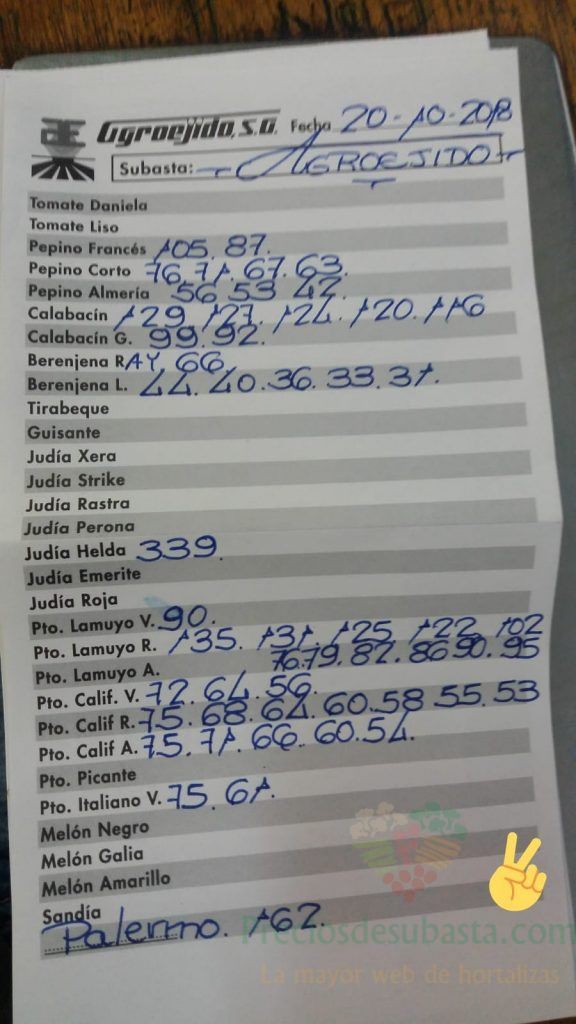 Agroejido, S.A. Fecha 20-10-2018
Subasta: AGROEJIDO
Tomate Daniela
Tomate Liso
Pepino Francés 105. 87.
Pepino Corto 76. 71. 67. 63.
Pepino Almería 56 53 42
Calabacín 129. 127. 124. 120. 116
Calabacín G. 99. 92.
Berenjena RAY 66.
Berenjena L. 44. 40. 36. 33. 31.
Tirabeque
Guisante
Judía Xera
Judía Strike
Judía Rastra
Judía Perona
Judía Helda 339.
Judía Emerite
Judía Roja
Pto. Lamuyo V. 90.
Pto. Lamuyo R. 135. 131. 125 122 102
Pto. Lamuyo A. 76. 79. 82. 86 90. 95
Pto. Calif. V. 72. 64. 56.
Pto. Calif R. 75. 68. 64. 60. 58 55. 53
Pto. Calif A. 75. 71. 66. 60. 54.
Pto. Picante
Pto. Italiano V. 75. 61.
Melón Negro
Melón Galia
Melón Amarillo
Sandía
Palermo. 162.
Preciosdesubasta.com
La mayor web de hortalizas